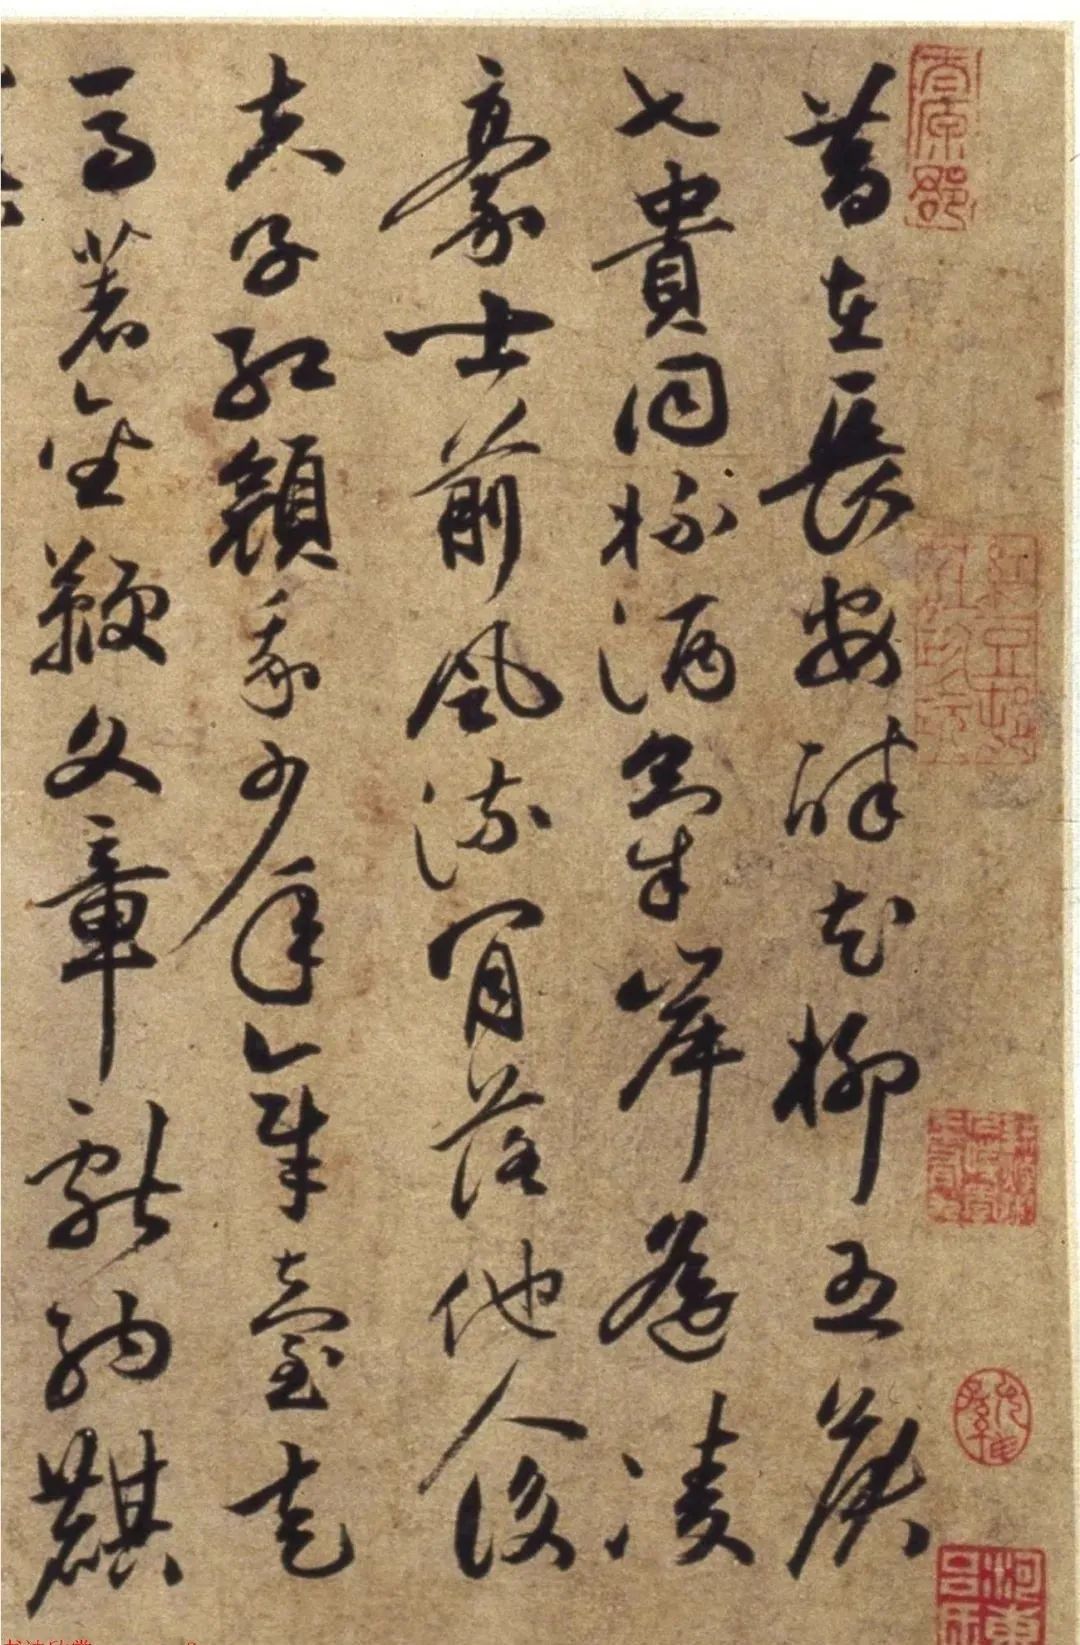 昔在長安醉花柳五侯
七貴同杯酒氣岸遥凌
豪士前風流肯落他人後
夫子紅顔我少年章臺走
馬著金鞭文章獻納麒